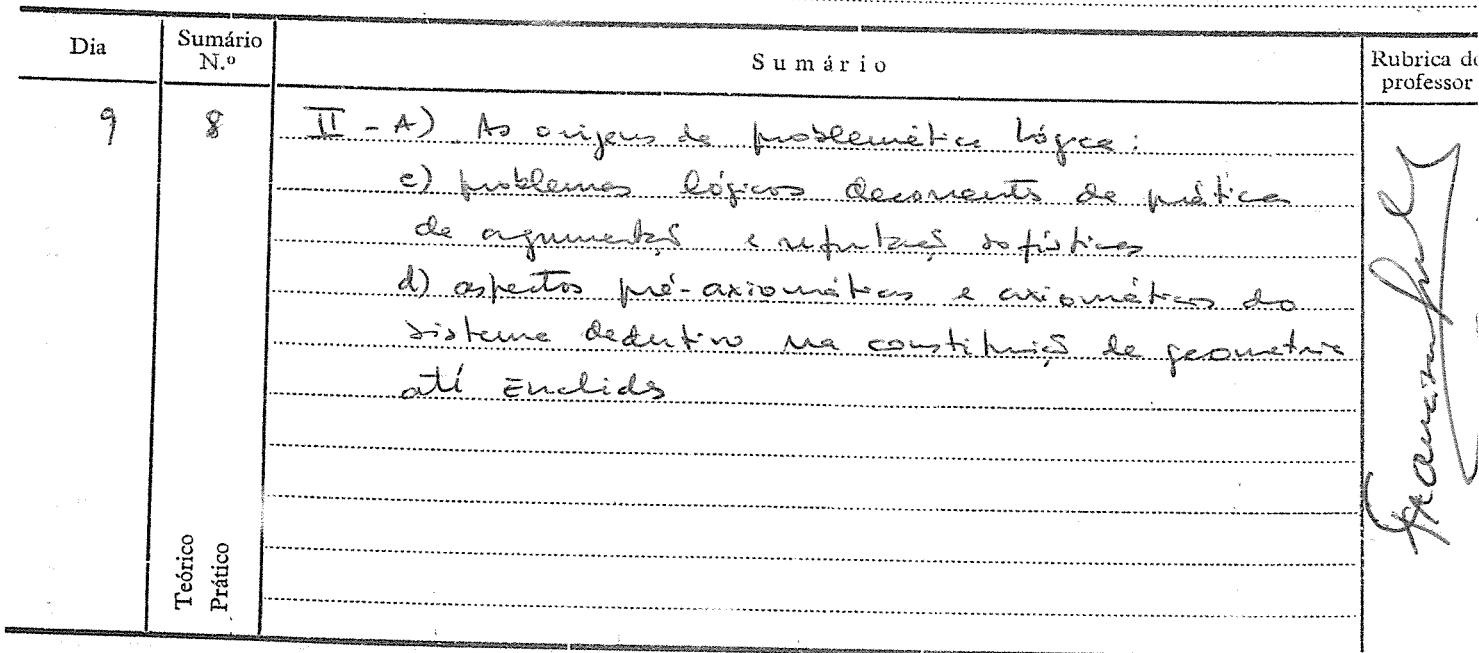 Dia
Sumário N.º
Sumário
Rubrica do professor
9
8
II - A) As origens da problemática lógica:
c) problemas lógicos decorrentes da prática
da argumentação e refutação sofísticas
d) aspectos pré-axiomáticos e axiomáticos do
sistema dedutivo na constituição da geometria
até Euclides
Teórico
Prático